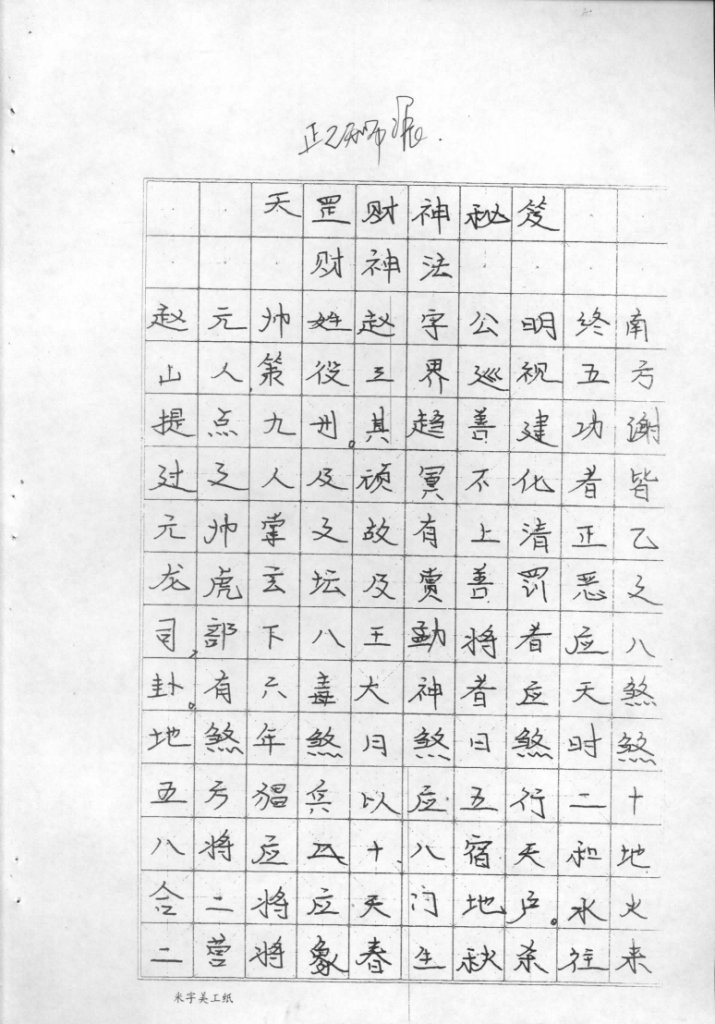 正乙天师派.
天罡财神秘笈
财神法
赵元帅姓赵字公明终南
山人第役三界巡视五方
提点九州。其趋善建功谢
过之人及顽冥不化者皆
元帅掌之故有上清正乙
龙虎玄坛及赏善罚恶之
司,部下八王勐将者应八
卦。有六毒大神者应天煞
地煞年煞月煞日煞时煞
五方猖兵以应五行二十
八将应二十八宿天和地
合二将应天门地户。水火
二营将象春生秋杀往来
米字美工纸